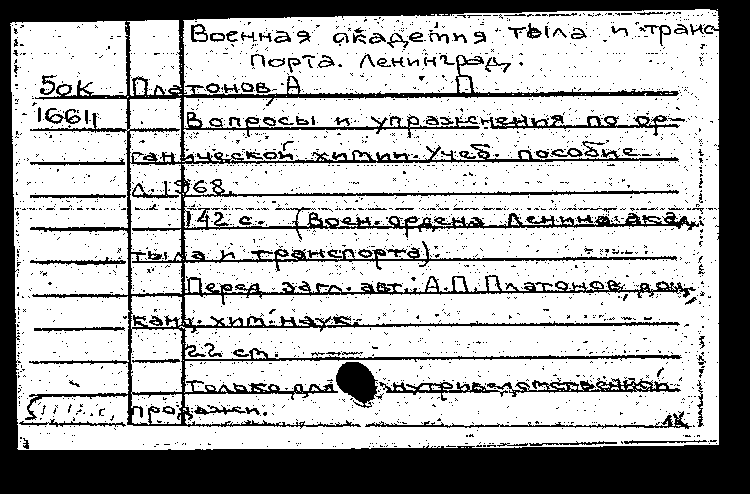 Военная академия тыла и транс-
порта. Ленинград.
50к Платонов, А П
16611 Вопросы и упражнения по ор-
ганической химии. Учеб. пособие
Л. 1968.
142 с. (Воен. ордена Ленина акад.
тыла и транспорта).
Перед загл. авт.: А.П. Платонов, доц.,
канд. хим. наук.
22 см.
Только для внутриведомственной
продажи.